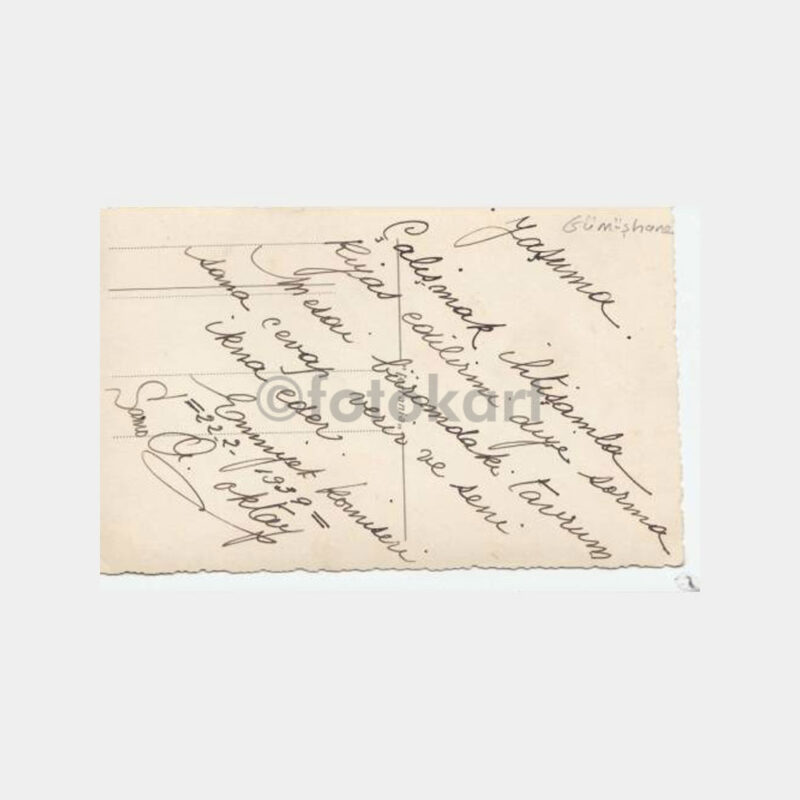 Gümüşhane
Yaşuma.
Çalışmak ihtişamla
kıyas edilirmi diye sorma
Mesai büromdaki tavrum
sana cevap verir ve seni
ikna eder.
Emniyet komiseri
=22.2.1939=
O. oktay
©fotokart